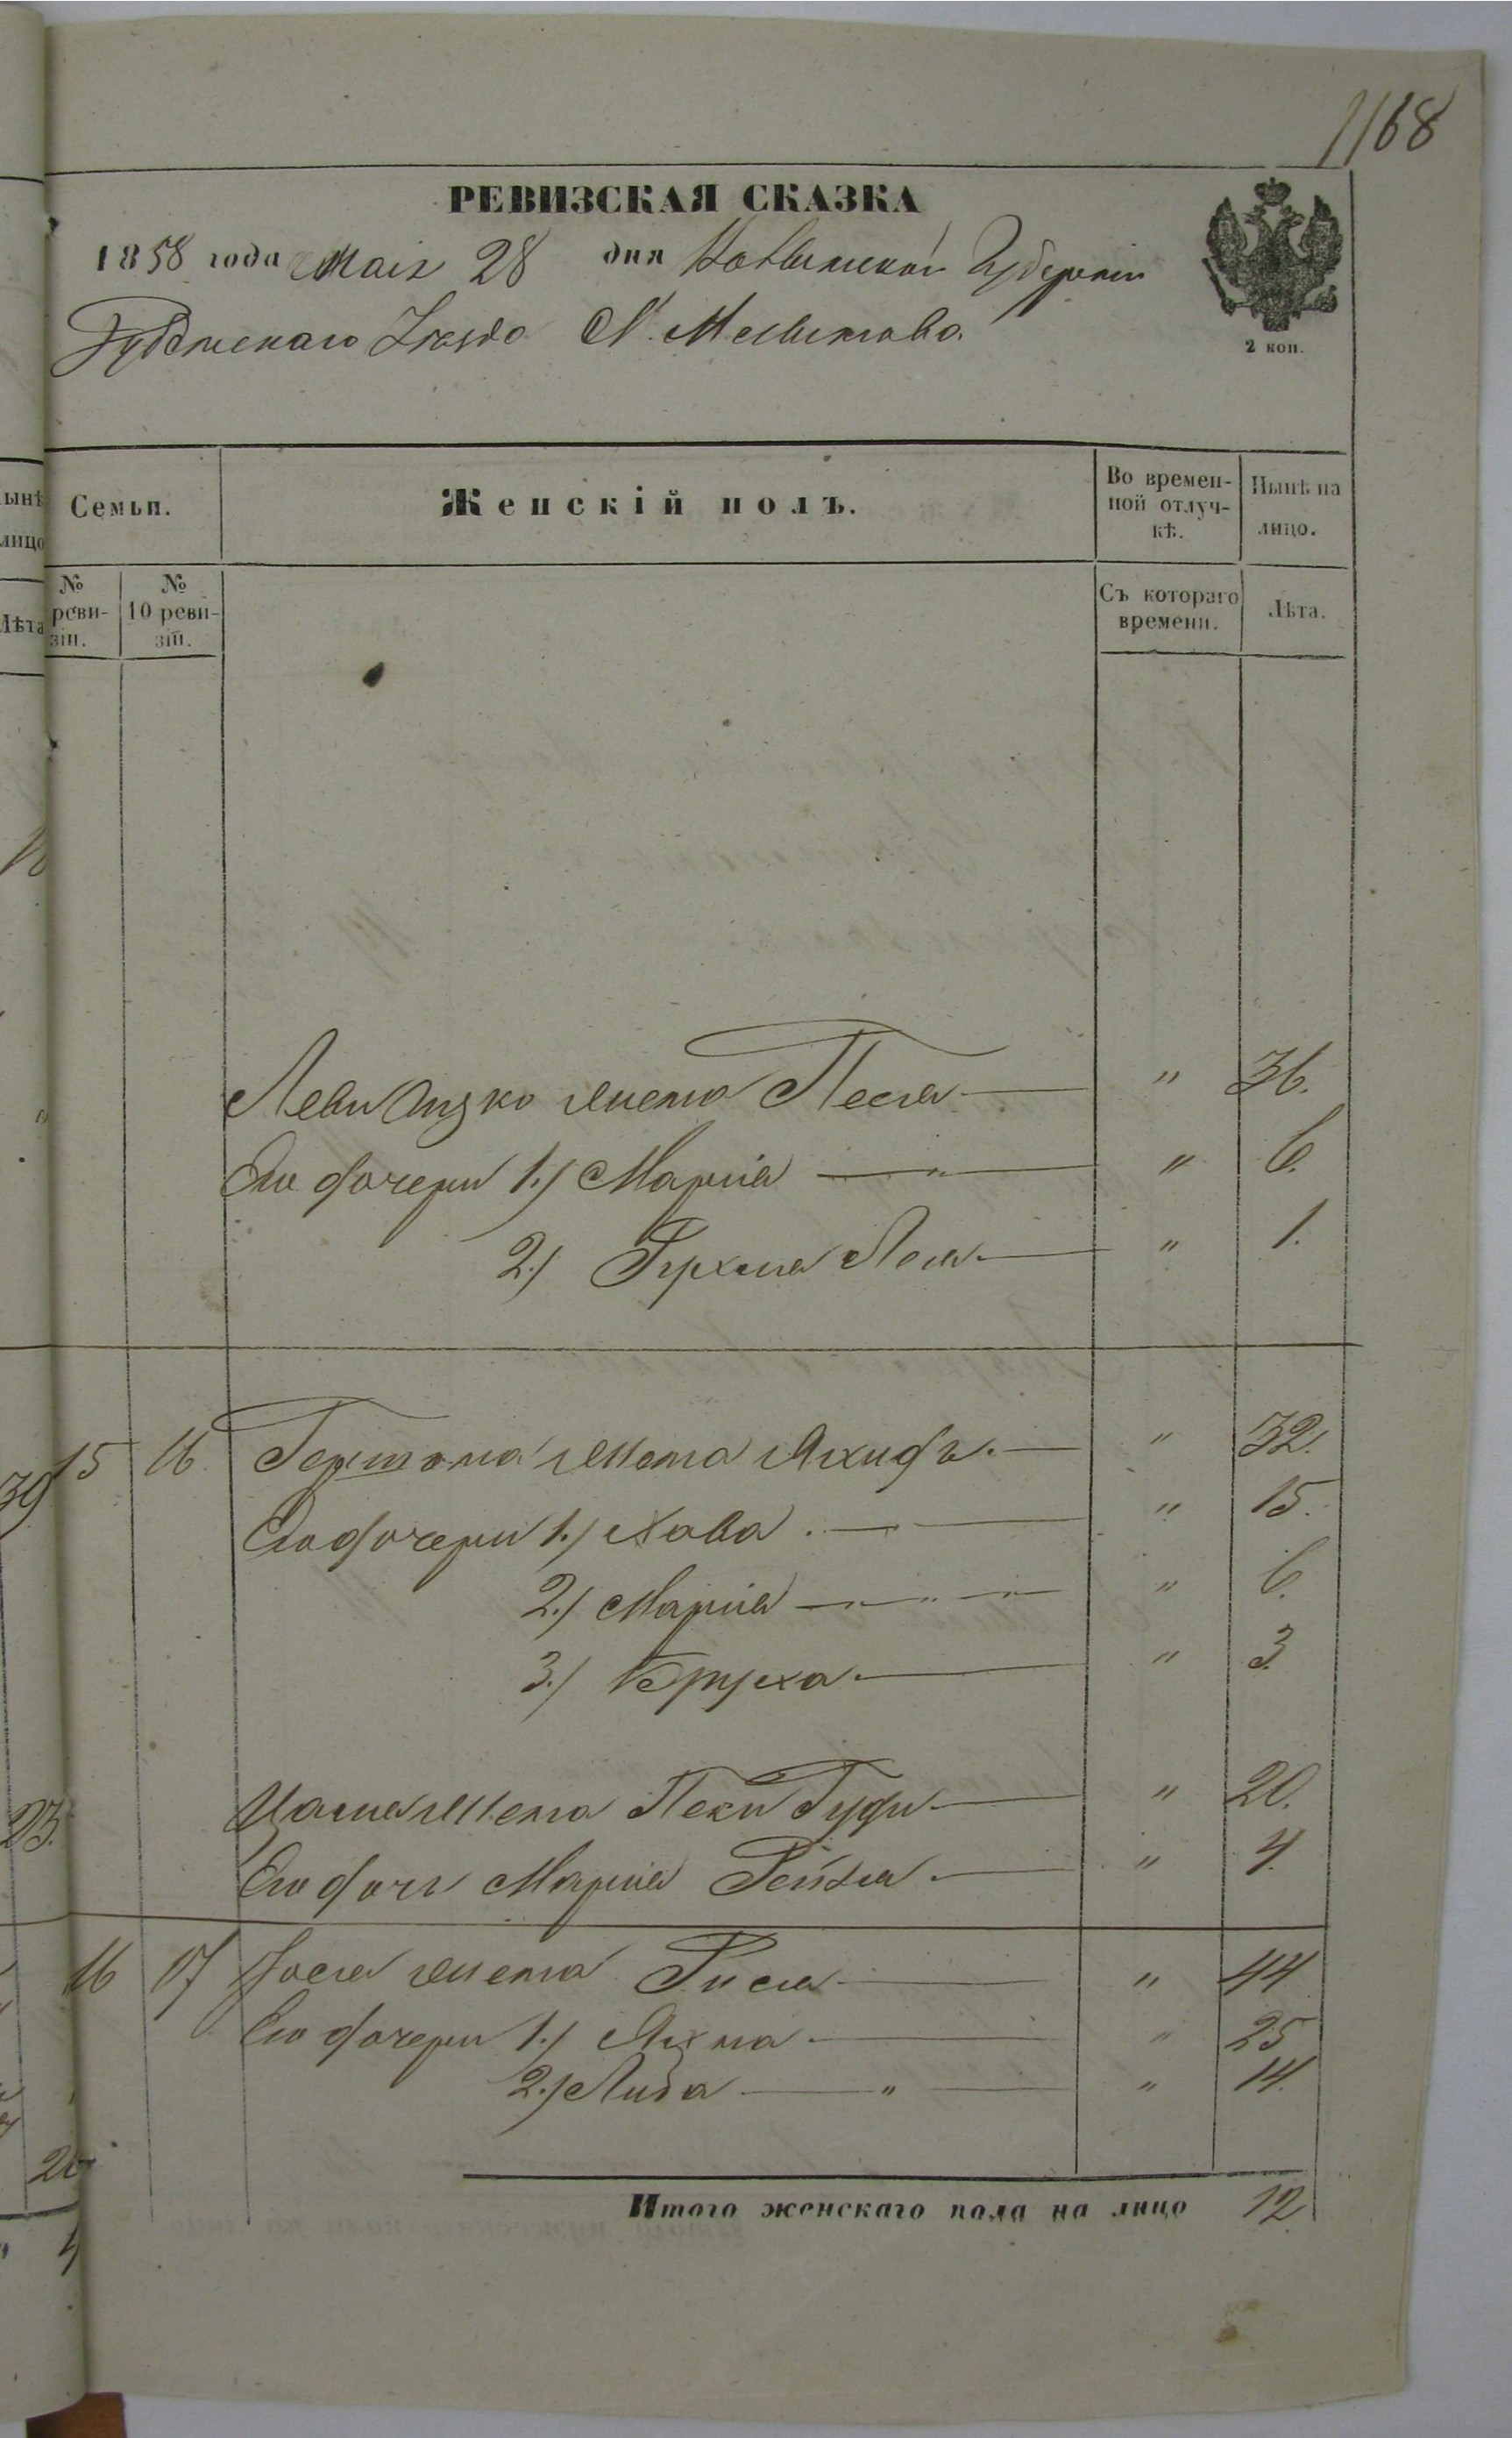 1168
РЕВИЗСКАЯ СКАЗКА
1858 года Маія 28 дня Ковенской Губерніи
уезда М.
2 коп.
ынѣ
лицо
Лѣта
Семьи.
Женскій полъ.
Во времен-
ной отлуч-
кѣ.
Нынѣ на
лицо.
№
реви-
зіи.
№
10 реви-
зіи.
Съ котораго
времени.
Лѣта.
Леви Ицко жена Песя — " 36.
Его дочери 1.) Марія — " 6.
2.) Лея — " 1.
15 16 жена — " 32.
39
Его дочери 1.) Хава. — " 15.
2.) Марія — " 6.
3.) Бруха — " 3.
жена Гуди — " 20.
23.
Его дочь Марія Рейза — " 4.
16 17 жена Рися — " 44
Его дочери 1.) Яхна — " 25
2.) Либа — " 14.
Итого женскаго пола на лицо 12
4